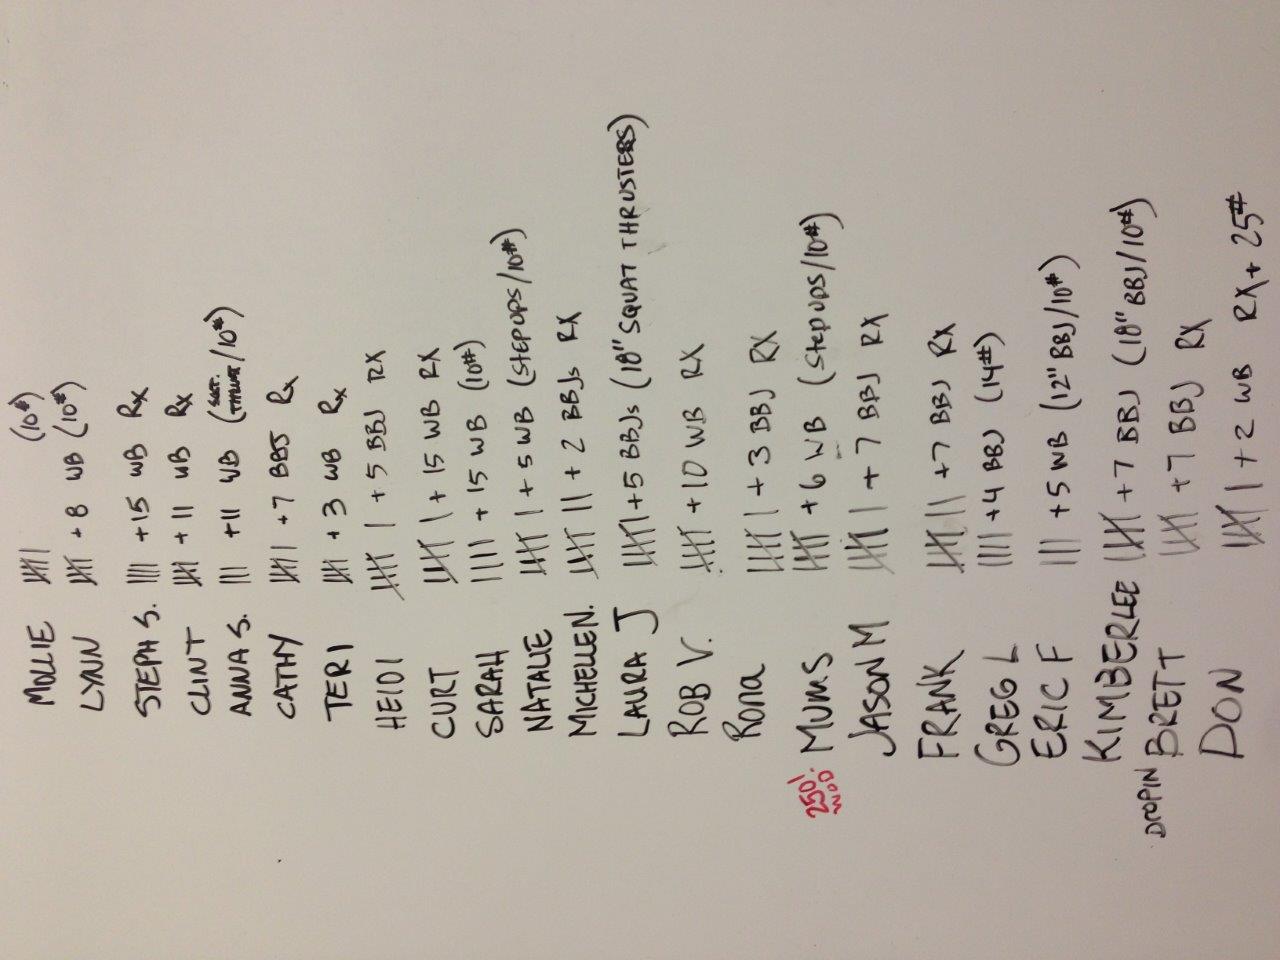 MOLLIE 𝍸 I (10#)
LYNN 𝍸 + 8 WB (10#)
STEPH S. IIII +15 WB Rx
CLINT 𝍸 + 11 WB Rx
ANNA S. III +11 WB (SQT. THRUST/10#)
CATHY 𝍸 I +7 BBJ Rx
TERI 𝍸 + 3 WB Rx
HEIDI 𝍸 I + 5 BBJ RX
CURT 𝍸 I + 15 WB RX
SARAH IIII + 15 WB (10#)
NATALIE 𝍸 I + 5 WB (STEPUPS/10#)
MICHELLE N. 𝍸 II + 2 BBJs RX
LAURA J 𝍸 I +5 BBJs (18" SQUAT THRUSTERS)
ROB V. 𝍸 +10 WB RX
Rona 𝍸 I + 3 BBJ RX
250! WOD MUMS 𝍸 + 6 WB (StepUps/10#)
JASON M 𝍸 I + 7 BBJ RX
FRANK 𝍸 II +7 BBJ RX
GREG L IIII +4 BBJ (14#)
ERIC F III +5 WB (12" BBJ/10#)
KIMBERLEE 𝍸 +7 BBJ (18" BBJ/10#)
DROPIN BRETT 𝍸 +7 BBJ RX
DON 𝍸 I +2 WB RX+25#